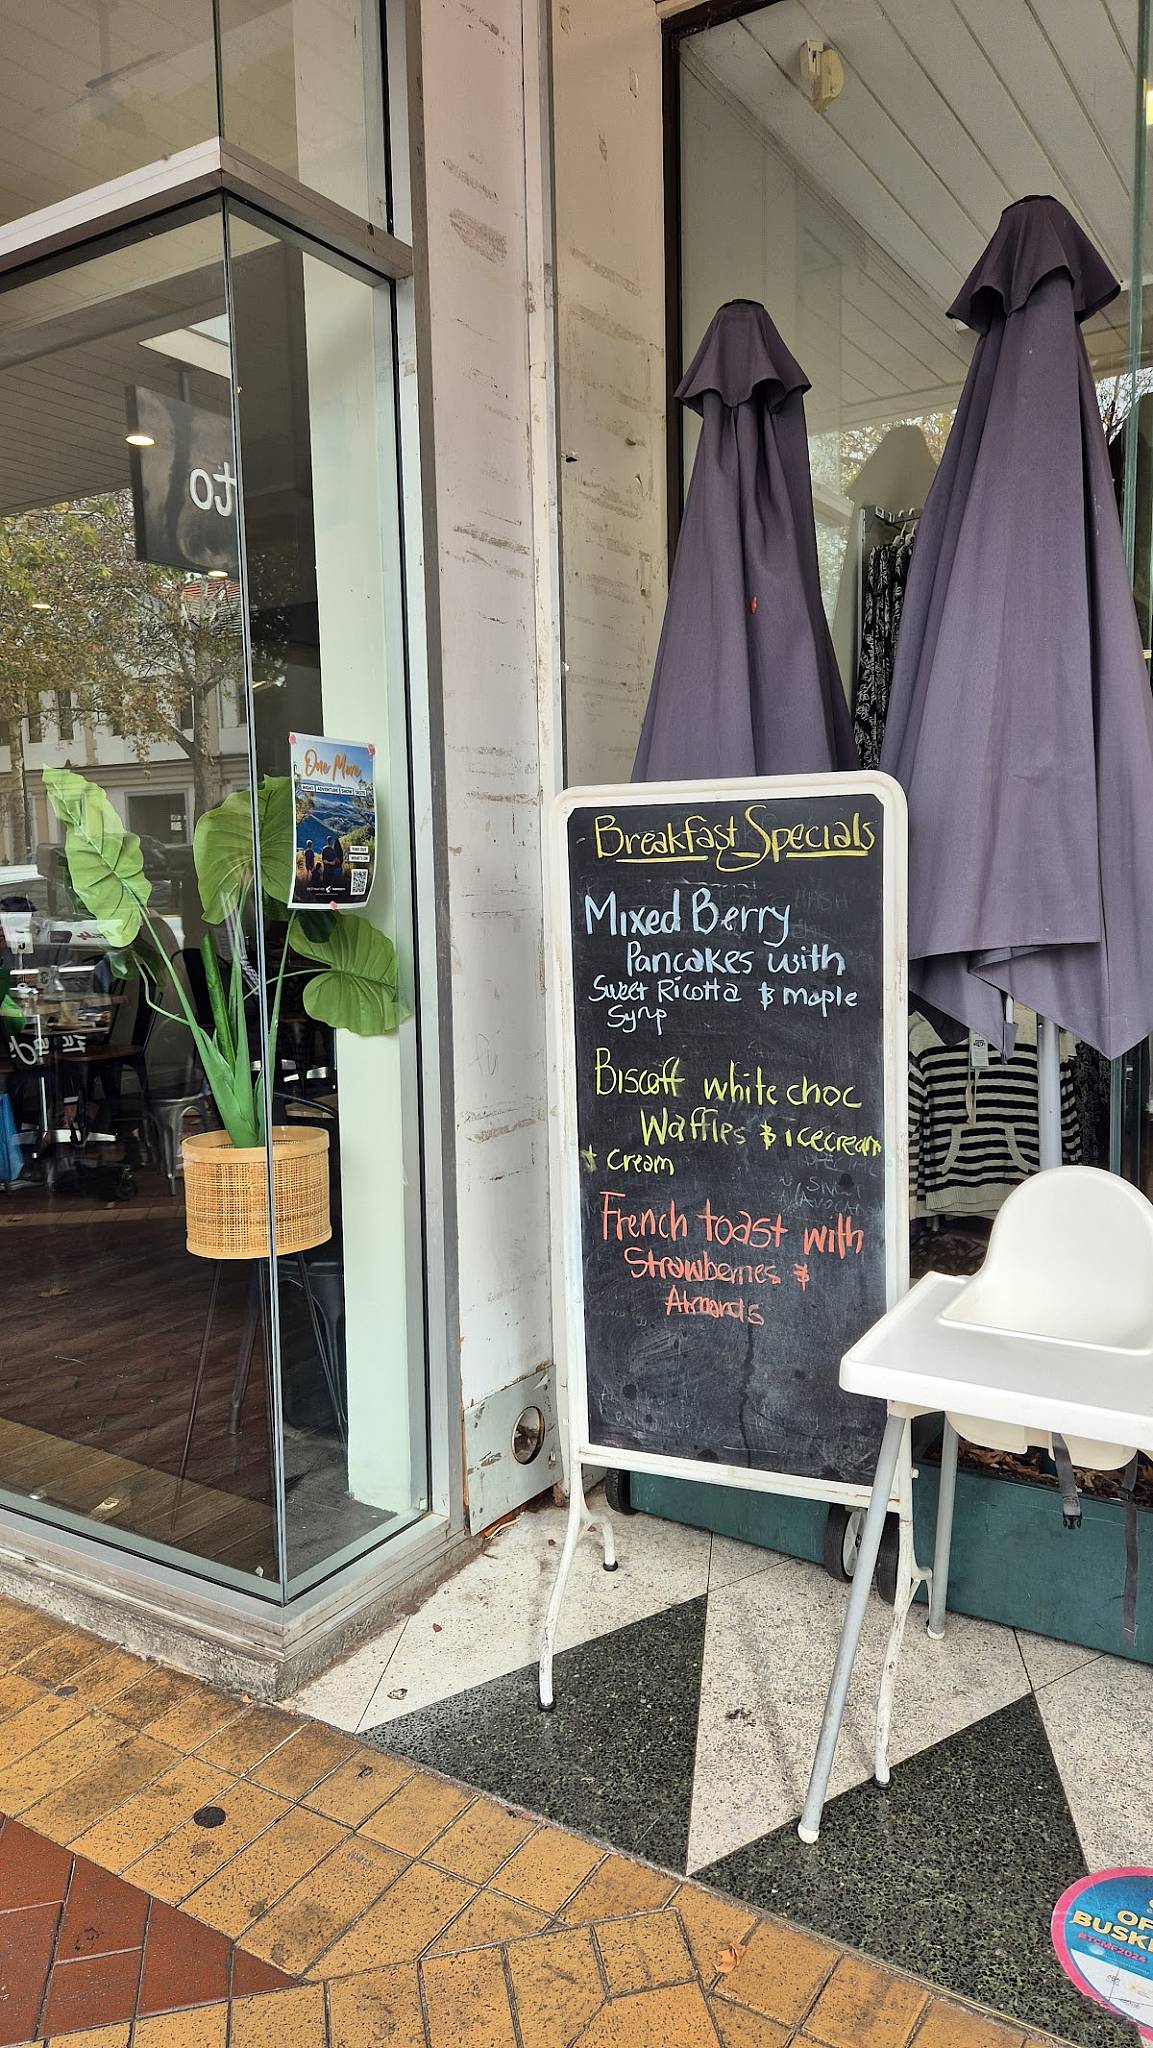 to
One More
Breakfast Specials
Mixed Berry
Pancakes with
Sweet Ricotta & maple
Syrup
Biscoff white choc
Waffles & icecream
+ cream
French toast with
Strawberries &
Almonds
OF
BUSK
#TCMF2024